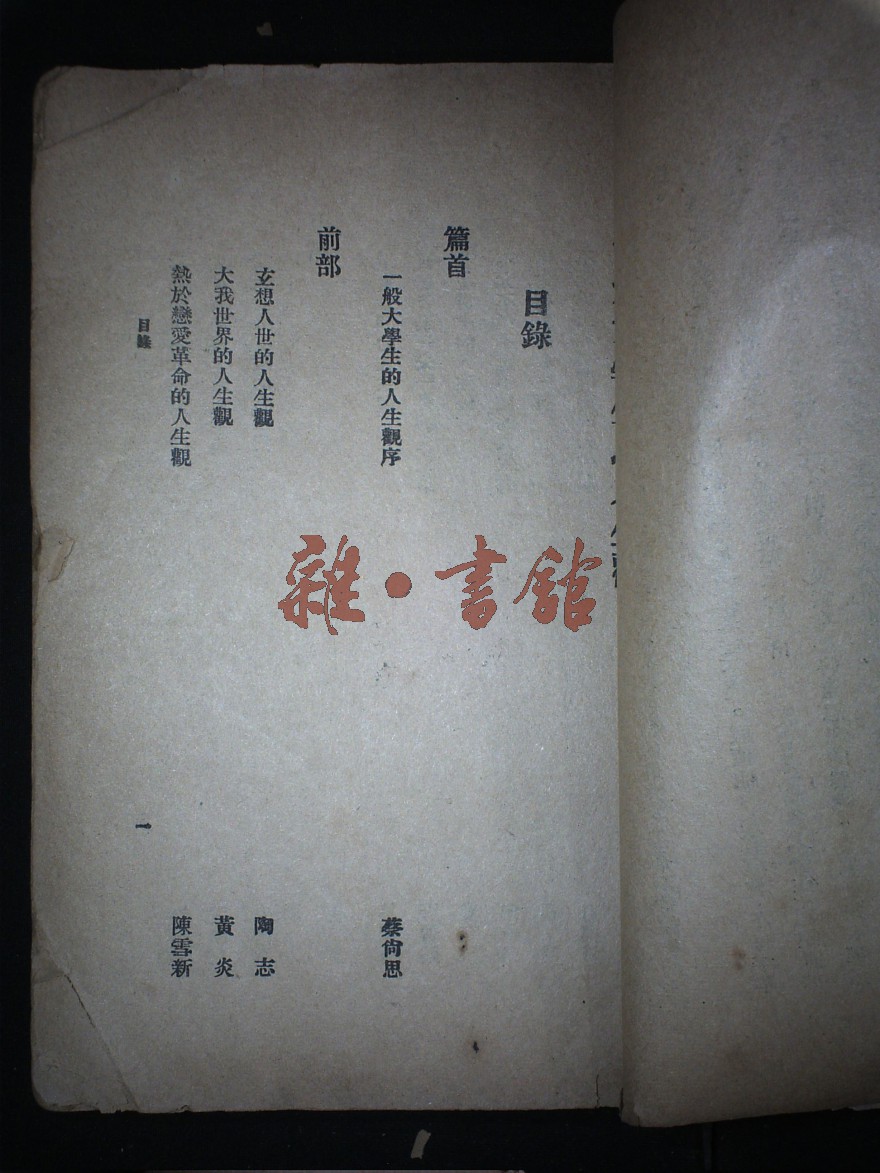 目錄
篇首
一般大學生的人生觀序 蔡尙思
前部
玄想人世的人生觀 陶志
大我世界的人生觀 黃炎
熱於戀愛革命的人生觀 陳雪新
目錄 一
雜·書館